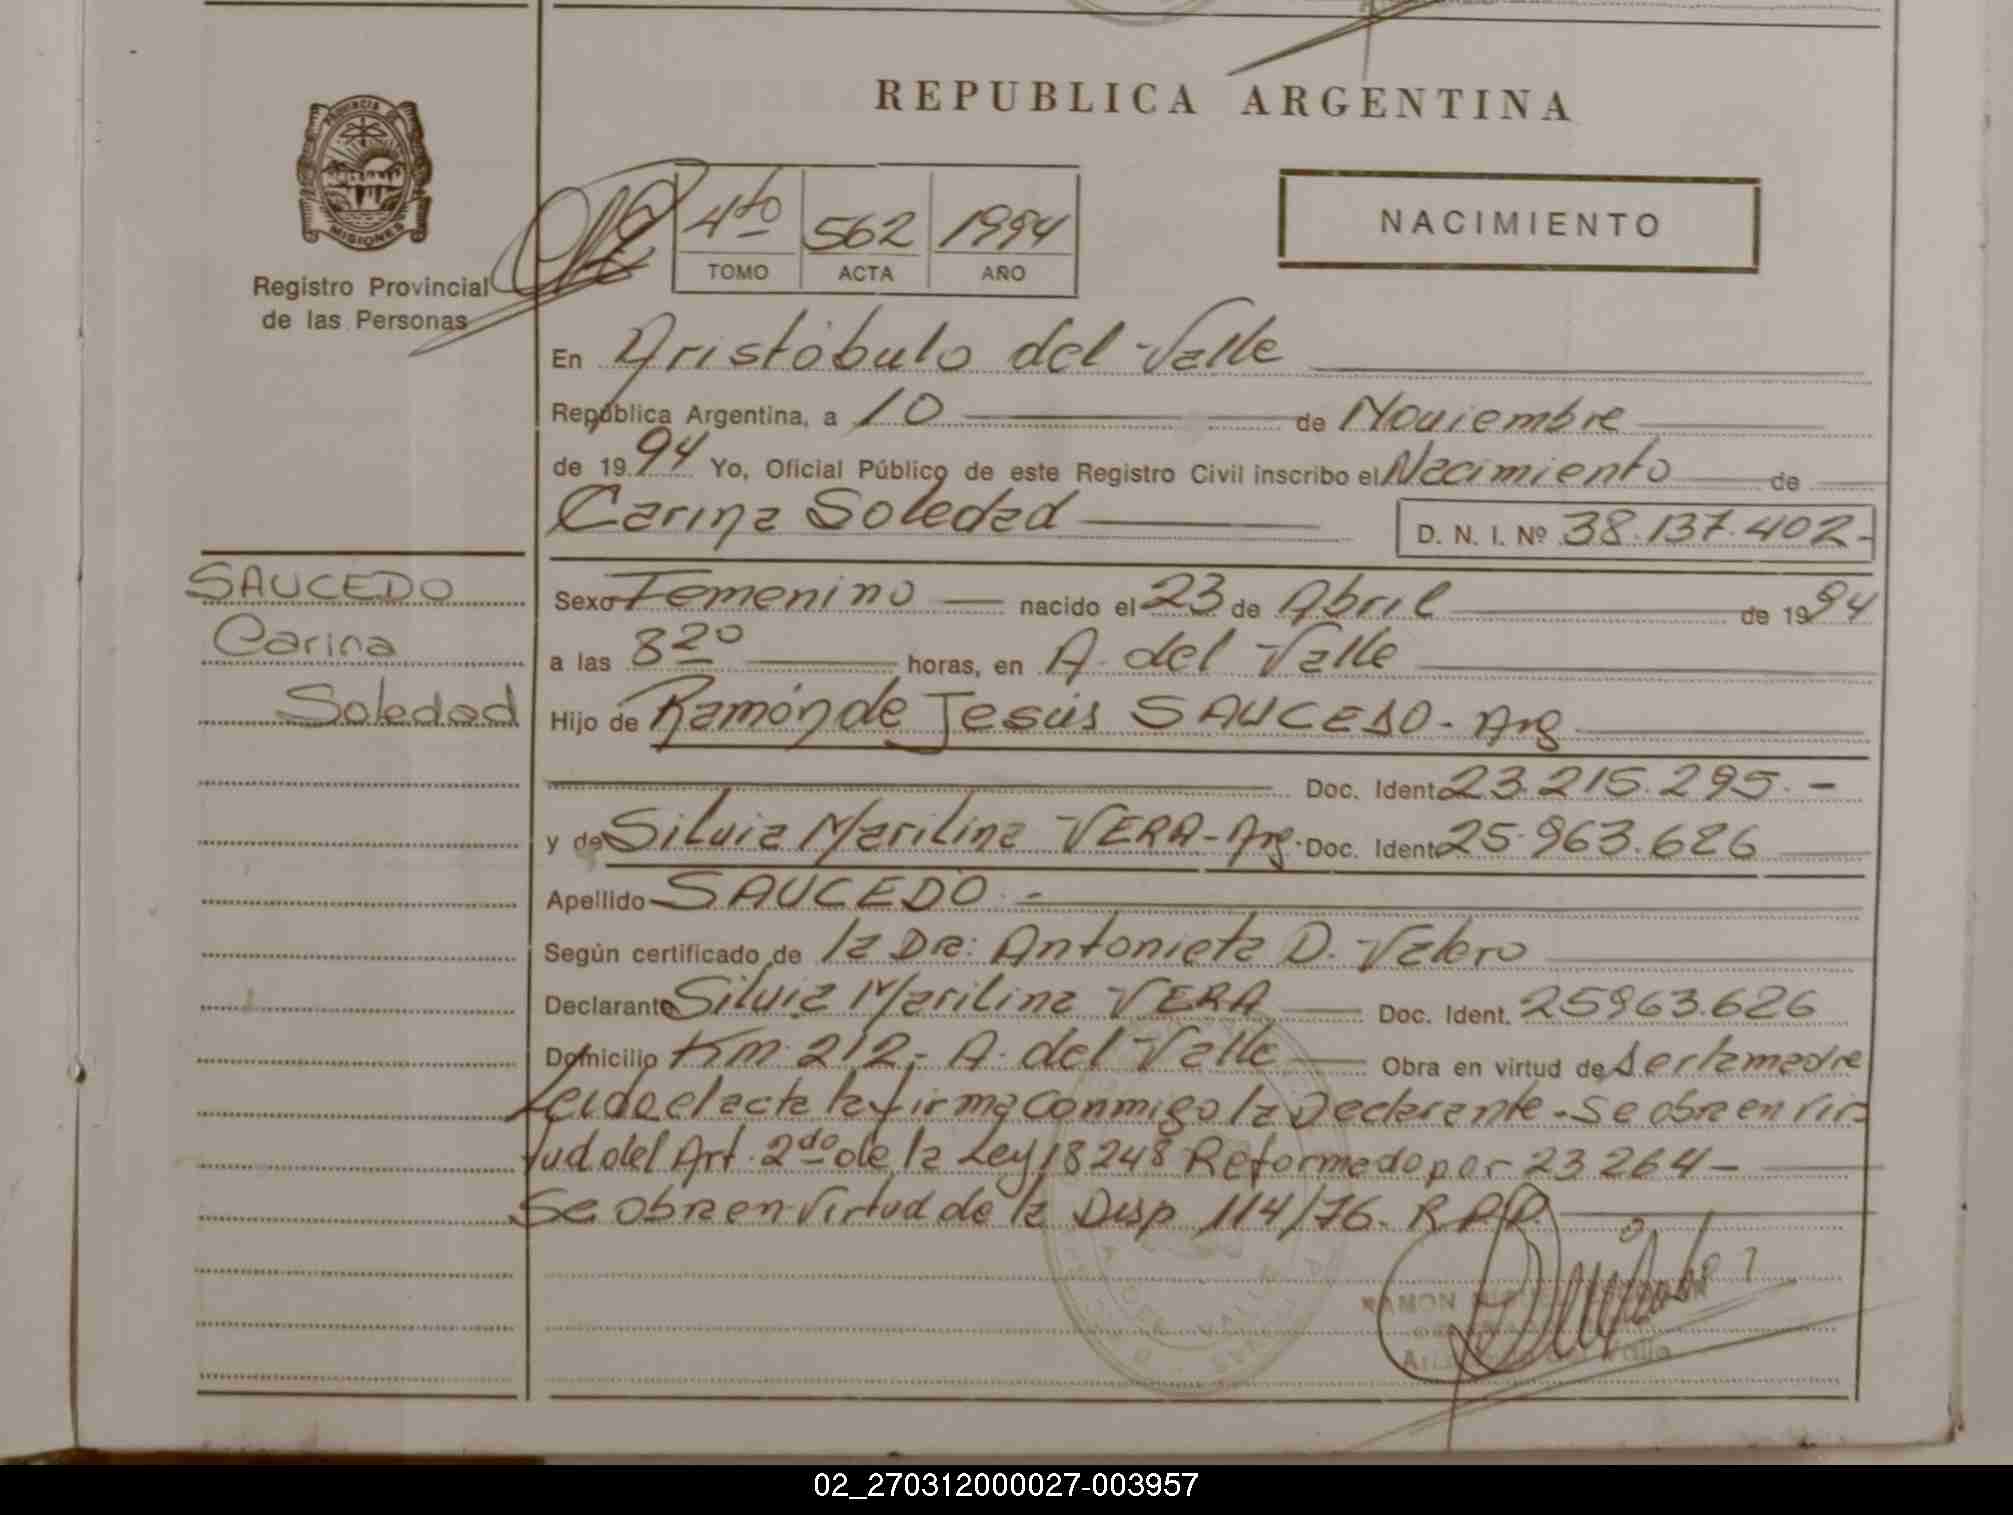 REPUBLICA ARGENTINA
PROVINCIA DE
MISIONES
Registro Provincial
de las Personas
4to 562 1994
TOMO ACTA AÑO
NACIMIENTO
En Aristóbulo del Valle
República Argentina, a 10 de Noviembre
de 1994 Yo, Oficial Público de este Registro Civil inscribo el Nacimiento de
Carina Soledad D. N. I. Nº 38.137.402-
SAUCEDO
Carina
Soledad
Sexo Femenino nacido el 23 de Abril de 1994
a las 8 20 horas, en A. del Valle
Hijo de Ramón de Jesús SAUCEDO - Arg
Doc. Ident. 23.215.295.-
y de Silvia Marilina VERA - Arg. Doc. Ident. 25.963.626
Apellido SAUCEDO -
Según certificado de la Dra: Antonieta D. Valero
Declarante Silvia Marilina VERA Doc. Ident. 25963.626
Domicilio Km. 212 - A. del Valle Obra en virtud de Ser la madre
Leído el acta la firma conmigo la Declarante - Se obra en vir
tud del Art. 2do de la Ley 18248 Reformado por 23264-
Se obra en virtud de la Disp 114/76. R.P.P.
RAMON
Valle
02_270312000027-003957